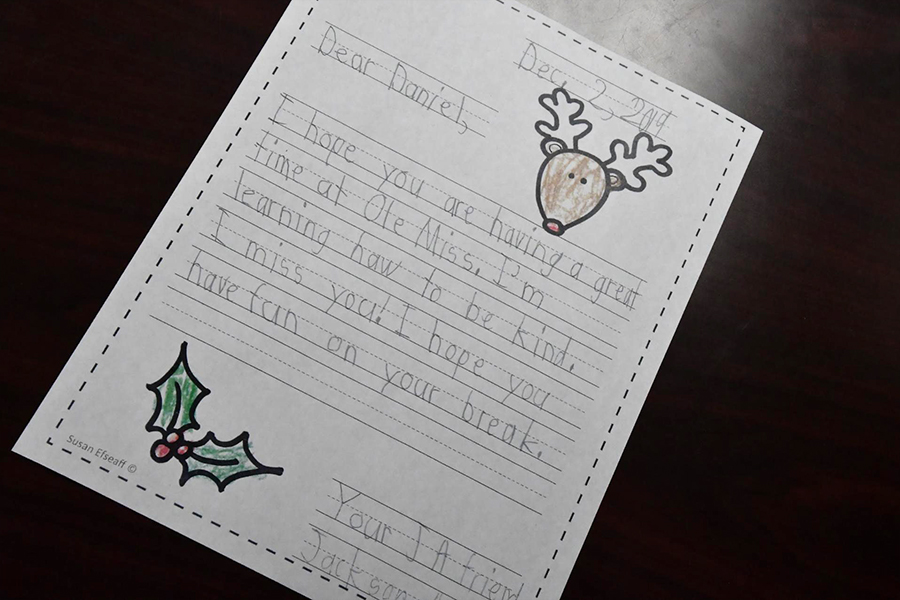 Dec. 2, 2014
Dear Daniel,
I hope you are having a great
time at Ole Miss. I'm
learning haw to be kind.
I miss you! I hope you
have fun on your break.
Your J A friend
Jackson
Susan Elseaff ©